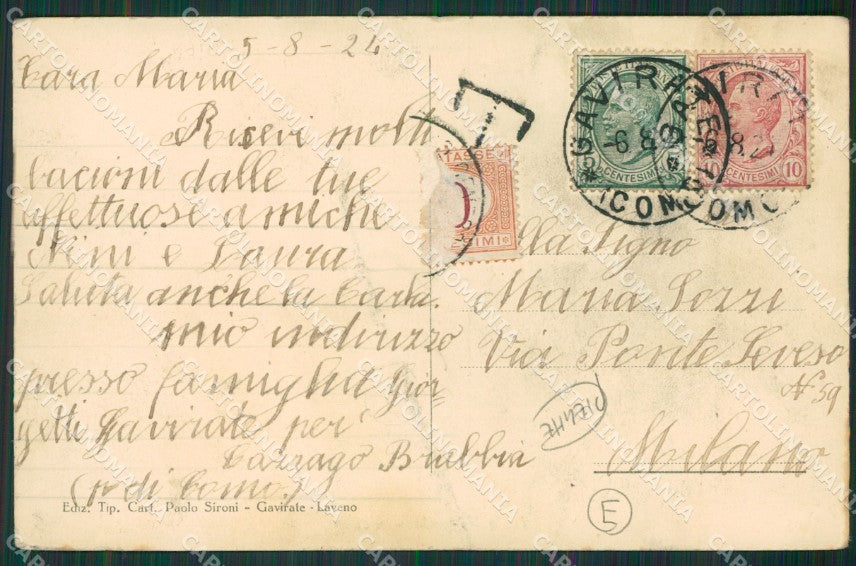 5-8-24
Cara Maria
Ricevi molti
bacioni dalle tue
affettuose amiche
Nini e Laura
Saluta anche la Carla.
mio indirizzo
presso famiglia Gior-
getti Gavirate per
Cazzago Brabbia
(p. di Como.)
Ediz. Tip. Cart. Paolo Sironi - Gavirate - Laveno
T
TASSE
CENTESIMI
CENTESIMI 10
GAVIRATE
COMO
-6.8
GAVIRATE
COMO
Alla Signo
Maria Pozzi
Via Ponte Seveso
N° 39
Milano
E
CARTOLINOMANIA